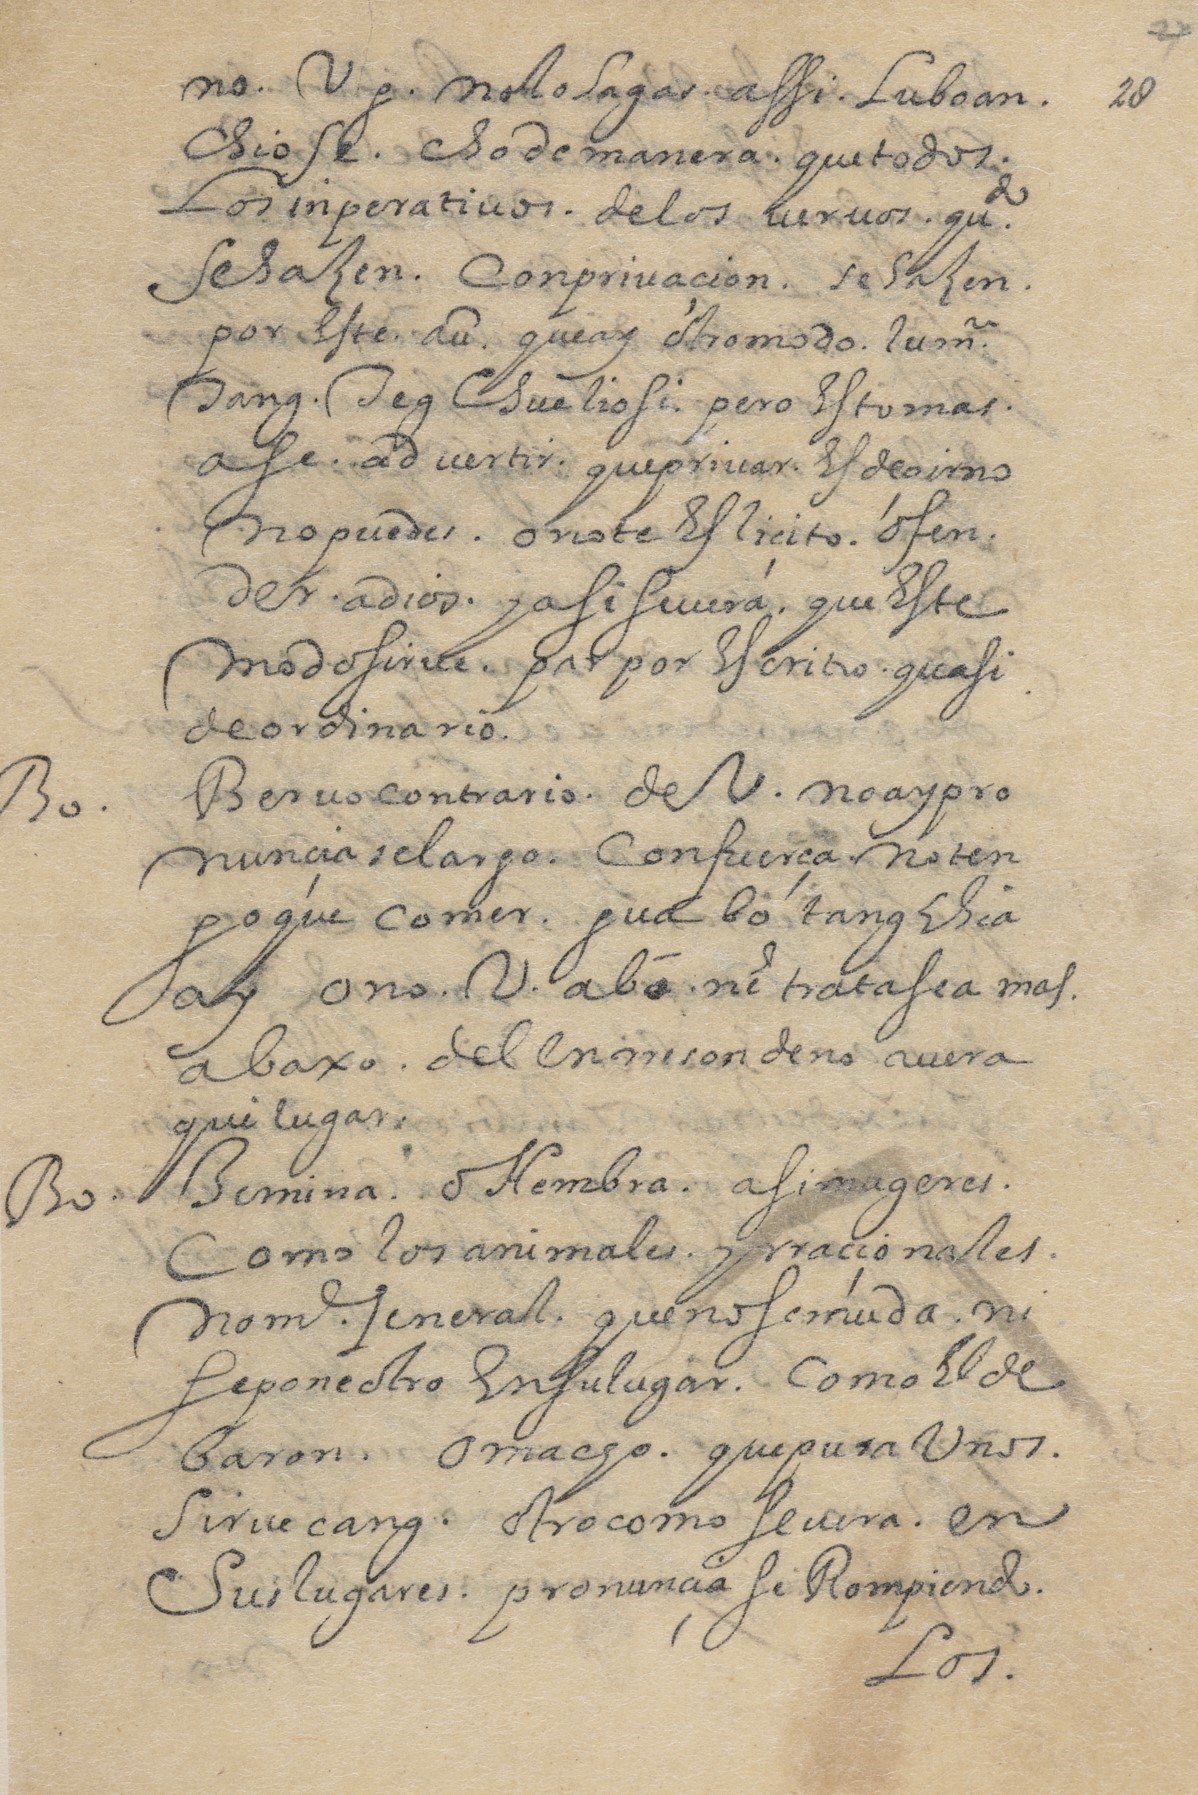 27
no. V. g. nolo hagas. assi. Luboan. 28
Chio se. cho de manera. que todos.
Los inperatiuos. delos veruos. qudo.
se hazen. Con privacion. se hazen.
por Este. au. que ay otro modo. lumr.
tang. Teg Chue liosi. pero Esto mas.
a se. advertir. que privar. Es decir no
no puedes. o no te Es licito. ofen.
der. a dios. y asi se uera. que Este
modo sirue. par por Escrito. quasi
de ordinario.
Bo. Beruo contrario. de V. no ay pro
nuncia se largo. Con fuerça. no ten
go que comer. gua bo tang Chia
ay o no. V. abo. ne tratasea mas.
abaxo. del
qui lugar.
Bo. Bemina. o Hembra. asi mugeres.
Como los animales. yrracionales.
nome. Jeneral. que no se muda. ni
se pone otro En su lugar. Como El de
baron. o macho. que pura Unos.
sirue cang. otro como se uera. en
Sus lugares. pronuncia se Rompiendo.
Los.